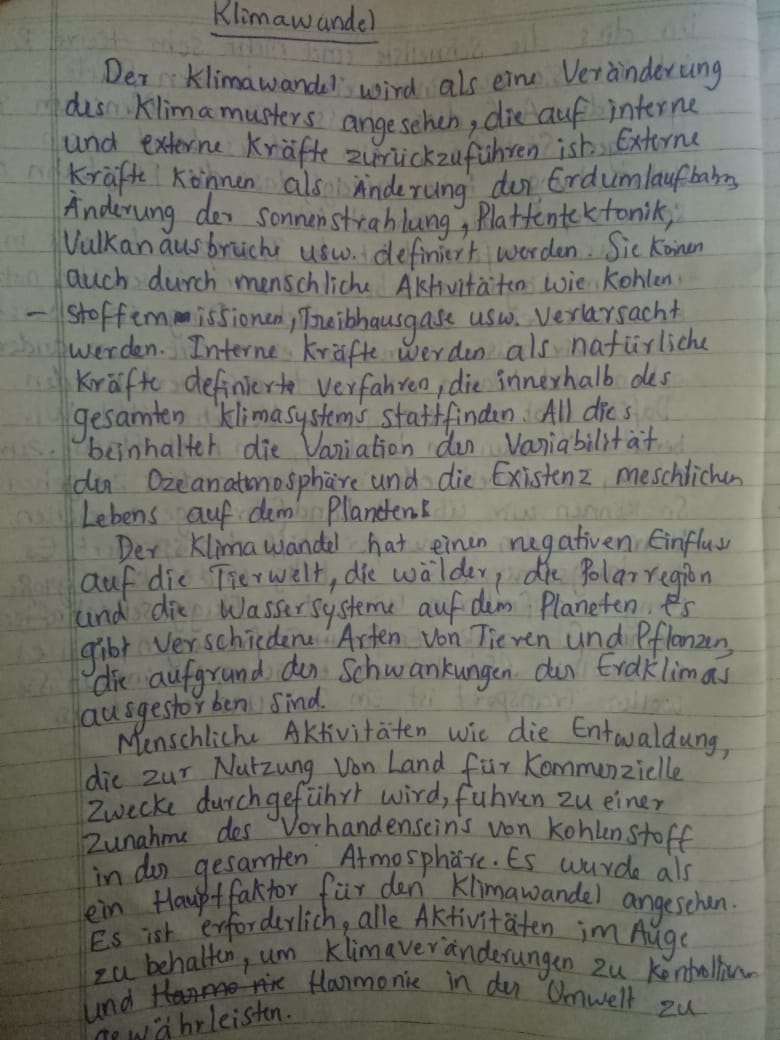 Klimawandel
Der Klimawandel wird als eine Veränderung
des Klimamusters angesehen, die auf interne
und externe Kräfte zurückzuführen ist. Externe
Kräfte können als Änderung der Erdumlaufbahn,
Änderung der Sonnenstrahlung, Plattentektonik,
Vulkanausbrüche usw. definiert werden. Sie können
auch durch menschliche Aktivitäten wie Kohlen
- stoffemissionen, Treibhausgase usw. verursacht
werden. Interne Kräfte werden als natürliche
Kräfte definierte Verfahren, die innerhalb des
gesamten Klimasystems stattfinden. All dies
beinhaltet die Variation der Variabilität
der Ozeanatmosphäre und die Existenz meschlichen
Lebens auf dem Planeten.
Der Klimawandel hat einen negativen Einfluss
auf die Tierwelt, die wälder, die Polarregion
und die Wassersysteme auf dem Planeten. Es
gibt verschiedene Arten von Tieren und Pflanzen,
die aufgrund der Schwankungen der Erdklimas
ausgestorben sind.
Menschliche Aktivitäten wie die Entwaldung,
die zur Nutzung von Land für Kommenzielle
Zwecke durchgeführt wird, führen zu einer
Zunahme des Vorhandenseins von Kohlenstoff
in der gesamten Atmosphäre. Es wurde als
ein Hauptfaktor für den Klimawandel angesehen.
Es ist erforderlich, alle Aktivitäten im Auge
zu behalten, um Klimaveränderungen zu kontrollieren
und Harmonie in der Umwelt zu
gewährleisten.